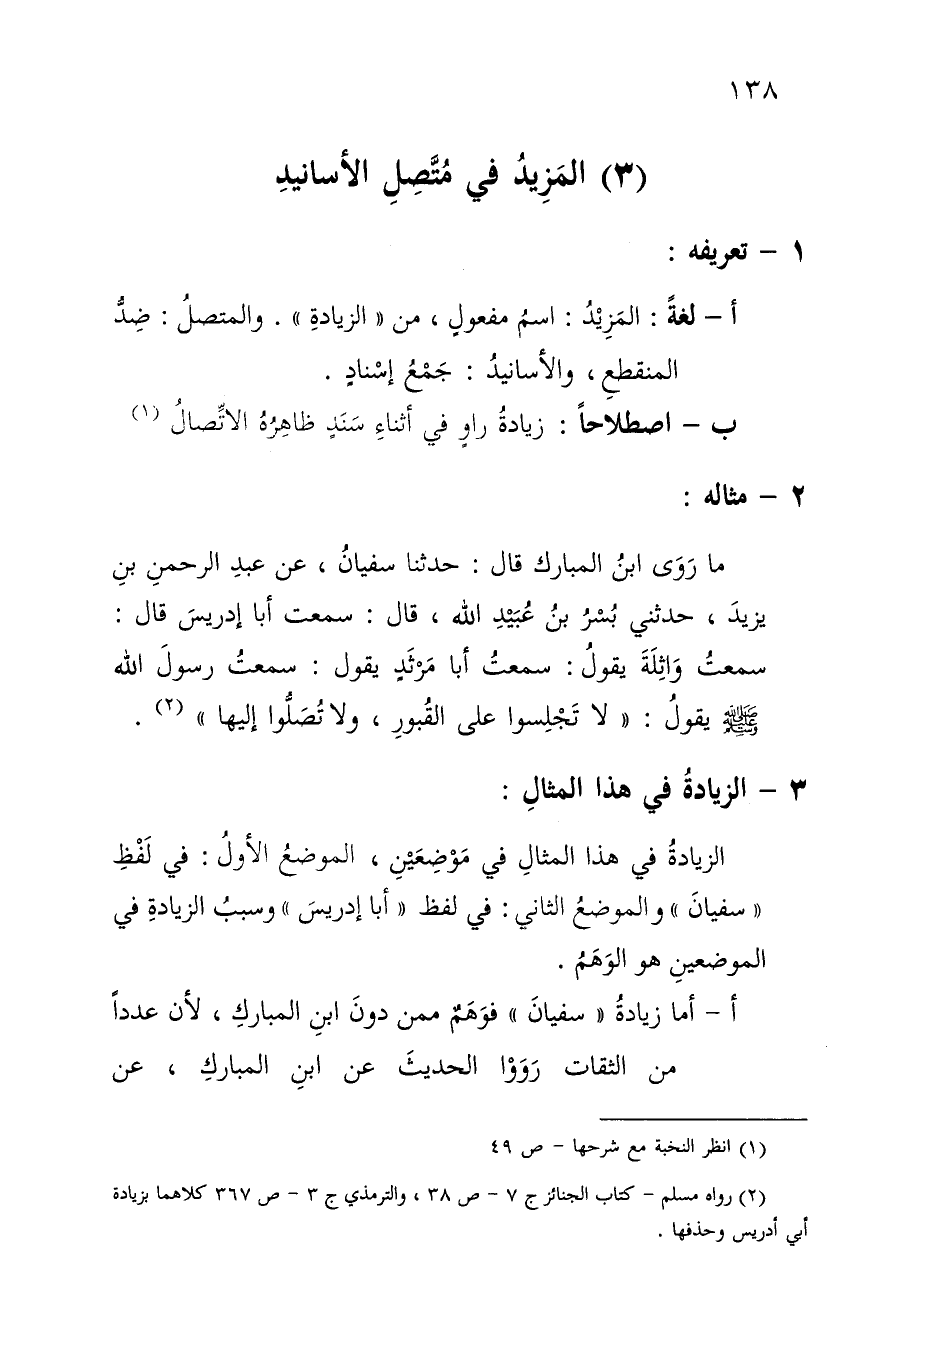 ١٣٨
(٣) المَزِيدُ في مُتَّصِلِ الأسانيدِ
١ – تعريفه :
أ – لغةً : المَزِيْدُ : اسمُ مفعولٍ ، من « الزيادةِ » . والمتصلُ : ضِدُّ
المنقطعِ ، والأسانيدُ : جَمْعُ إسْنادٍ .
ب – اصطلاحاً : زيادةُ راوٍ في أثناءِ سَنَدٍ ظاهِرُهُ الاتِّصالُ (١)
٢ – مثاله :
ما رَوَى ابنُ المبارك قال : حدثنا سفيانُ ، عن عبدِ الرحمنِ بنِ
يزيدَ ، حدثني بُسْرُ بنُ عُبَيْدِ الله ، قال : سمعت أبا إدريسَ قال :
سمعتُ وَاثِلَةَ يقولُ : سمعتُ أبا مَرْثَدٍ يقول : سمعتُ رسولَ الله
ﷺ يقولُ : « لا تَجْلِسوا على القُبورِ ، ولا تُصَلُّوا إليها » (٢) .
٣ – الزيادةُ في هذا المثالِ :
الزيادةُ في هذا المثالِ في مَوْضِعَيْنِ ، الموضعُ الأولُ : في لَفْظِ
« سفيانَ » والموضعُ الثاني : في لفظ « أبا إدريسَ » وسببُ الزيادةِ في
الموضعينِ هو الوَهَمُ .
أ – أما زيادةُ « سفيانَ » فوَهَمٌ ممن دونَ ابنِ المباركِ ، لأن عدداً
من الثقات رَوَوْا الحديثَ عن ابنِ المباركِ ، عن
(١) انظر النخبة مع شرحها – ص ٤٩
(٢) رواه مسلم – كتاب الجنائز ج ٧ – ص ٣٨ ، والترمذي ج ٣ – ص ٣٦٧ كلاهما بزيادة
أبي أدريس وحذفها .